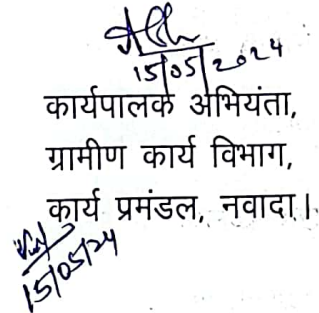 15/05/2024
कार्यपालक अभियंता,
ग्रामीण कार्य विभाग,
कार्य प्रमंडल, नवादा।
15/05/24